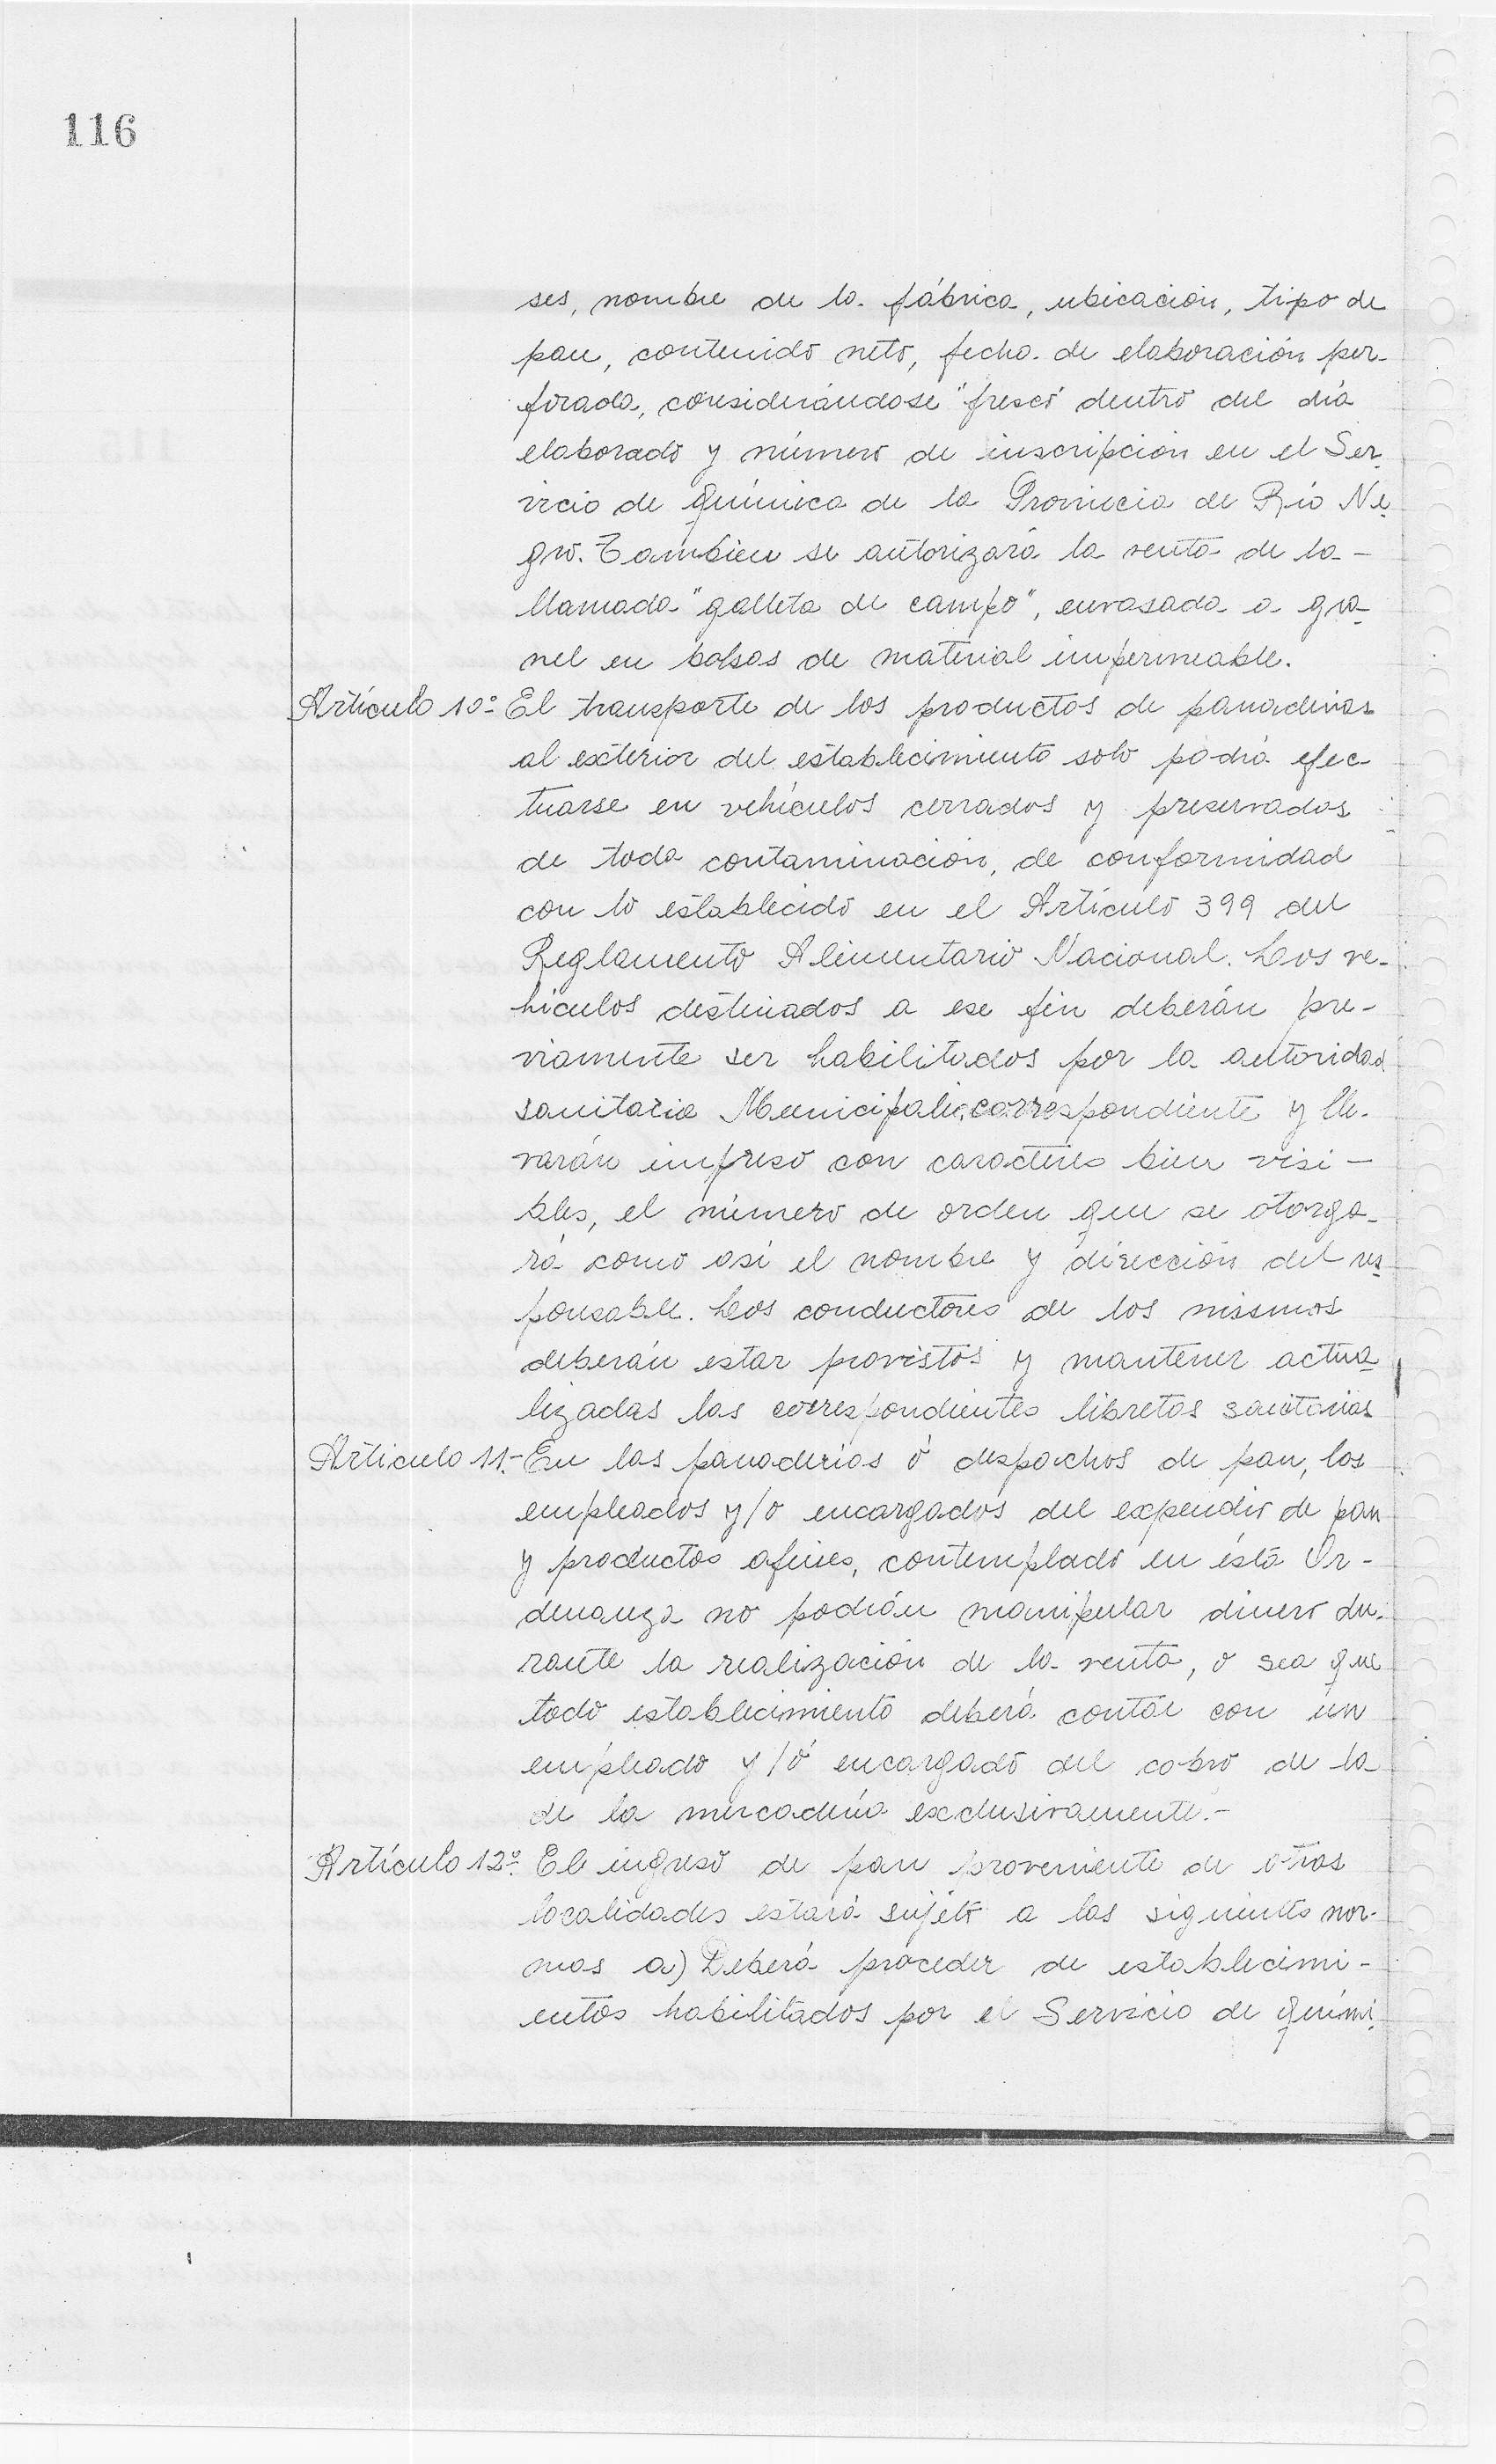 116
ses, nombre de la fábrica, ubicación, tipo de
pan, contenido neto, fecha de elaboración per-
forada, considerándose "fresco" dentro del día
elaborado y número de inscripción en el Ser-
vicio de Química de la Provincia de Río Ne-
gro. Tambien se autorizará la venta de la -
llamada "galleta de campo", envasada a gra-
nel en bolsas de material impermeable.
Artículo 10º El transporte de los productos de panaderias
al exterior del establecimiento solo podrá efec-
tuarse en vehículos cerrados y preservados
de toda contaminación, de conformidad
con lo establecido en el Artículo 399 del
Reglamento Alimentario Nacional. Los ve-
hiculos destinados a ese fin deberán pre-
viamente ser habilitados por la autoridad
sanitaria Municipal correspondiente y lle-
varán impreso con caracteres bien visi-
bles, el número de orden que se otorga-
rá como así el nombre y dirección del res-
ponsable. Los conductores de los mismos
deberán estar provistos y mantener actua-
lizadas las correspondientes libretas sanitarias
Articulo 11.- En las panaderias ó despachos de pan, los
empleados y/o encargados del expendio de pan
y productos afines, contemplado en ésta Or-
denanza no podrán manipular dinero du-
rante la realización de la venta, o sea que
todo establecimiento deberá contar con un
empleado y/ó encargado del cobro de la
de la mercadería exclusivamente.-
Artículo 12º El ingreso de pan proveniente de otras
localidades estará sujeto a las siguientes nor-
mas a) Deberá proceder de establecimi-
entos habilitados por el Servicio de Quími-